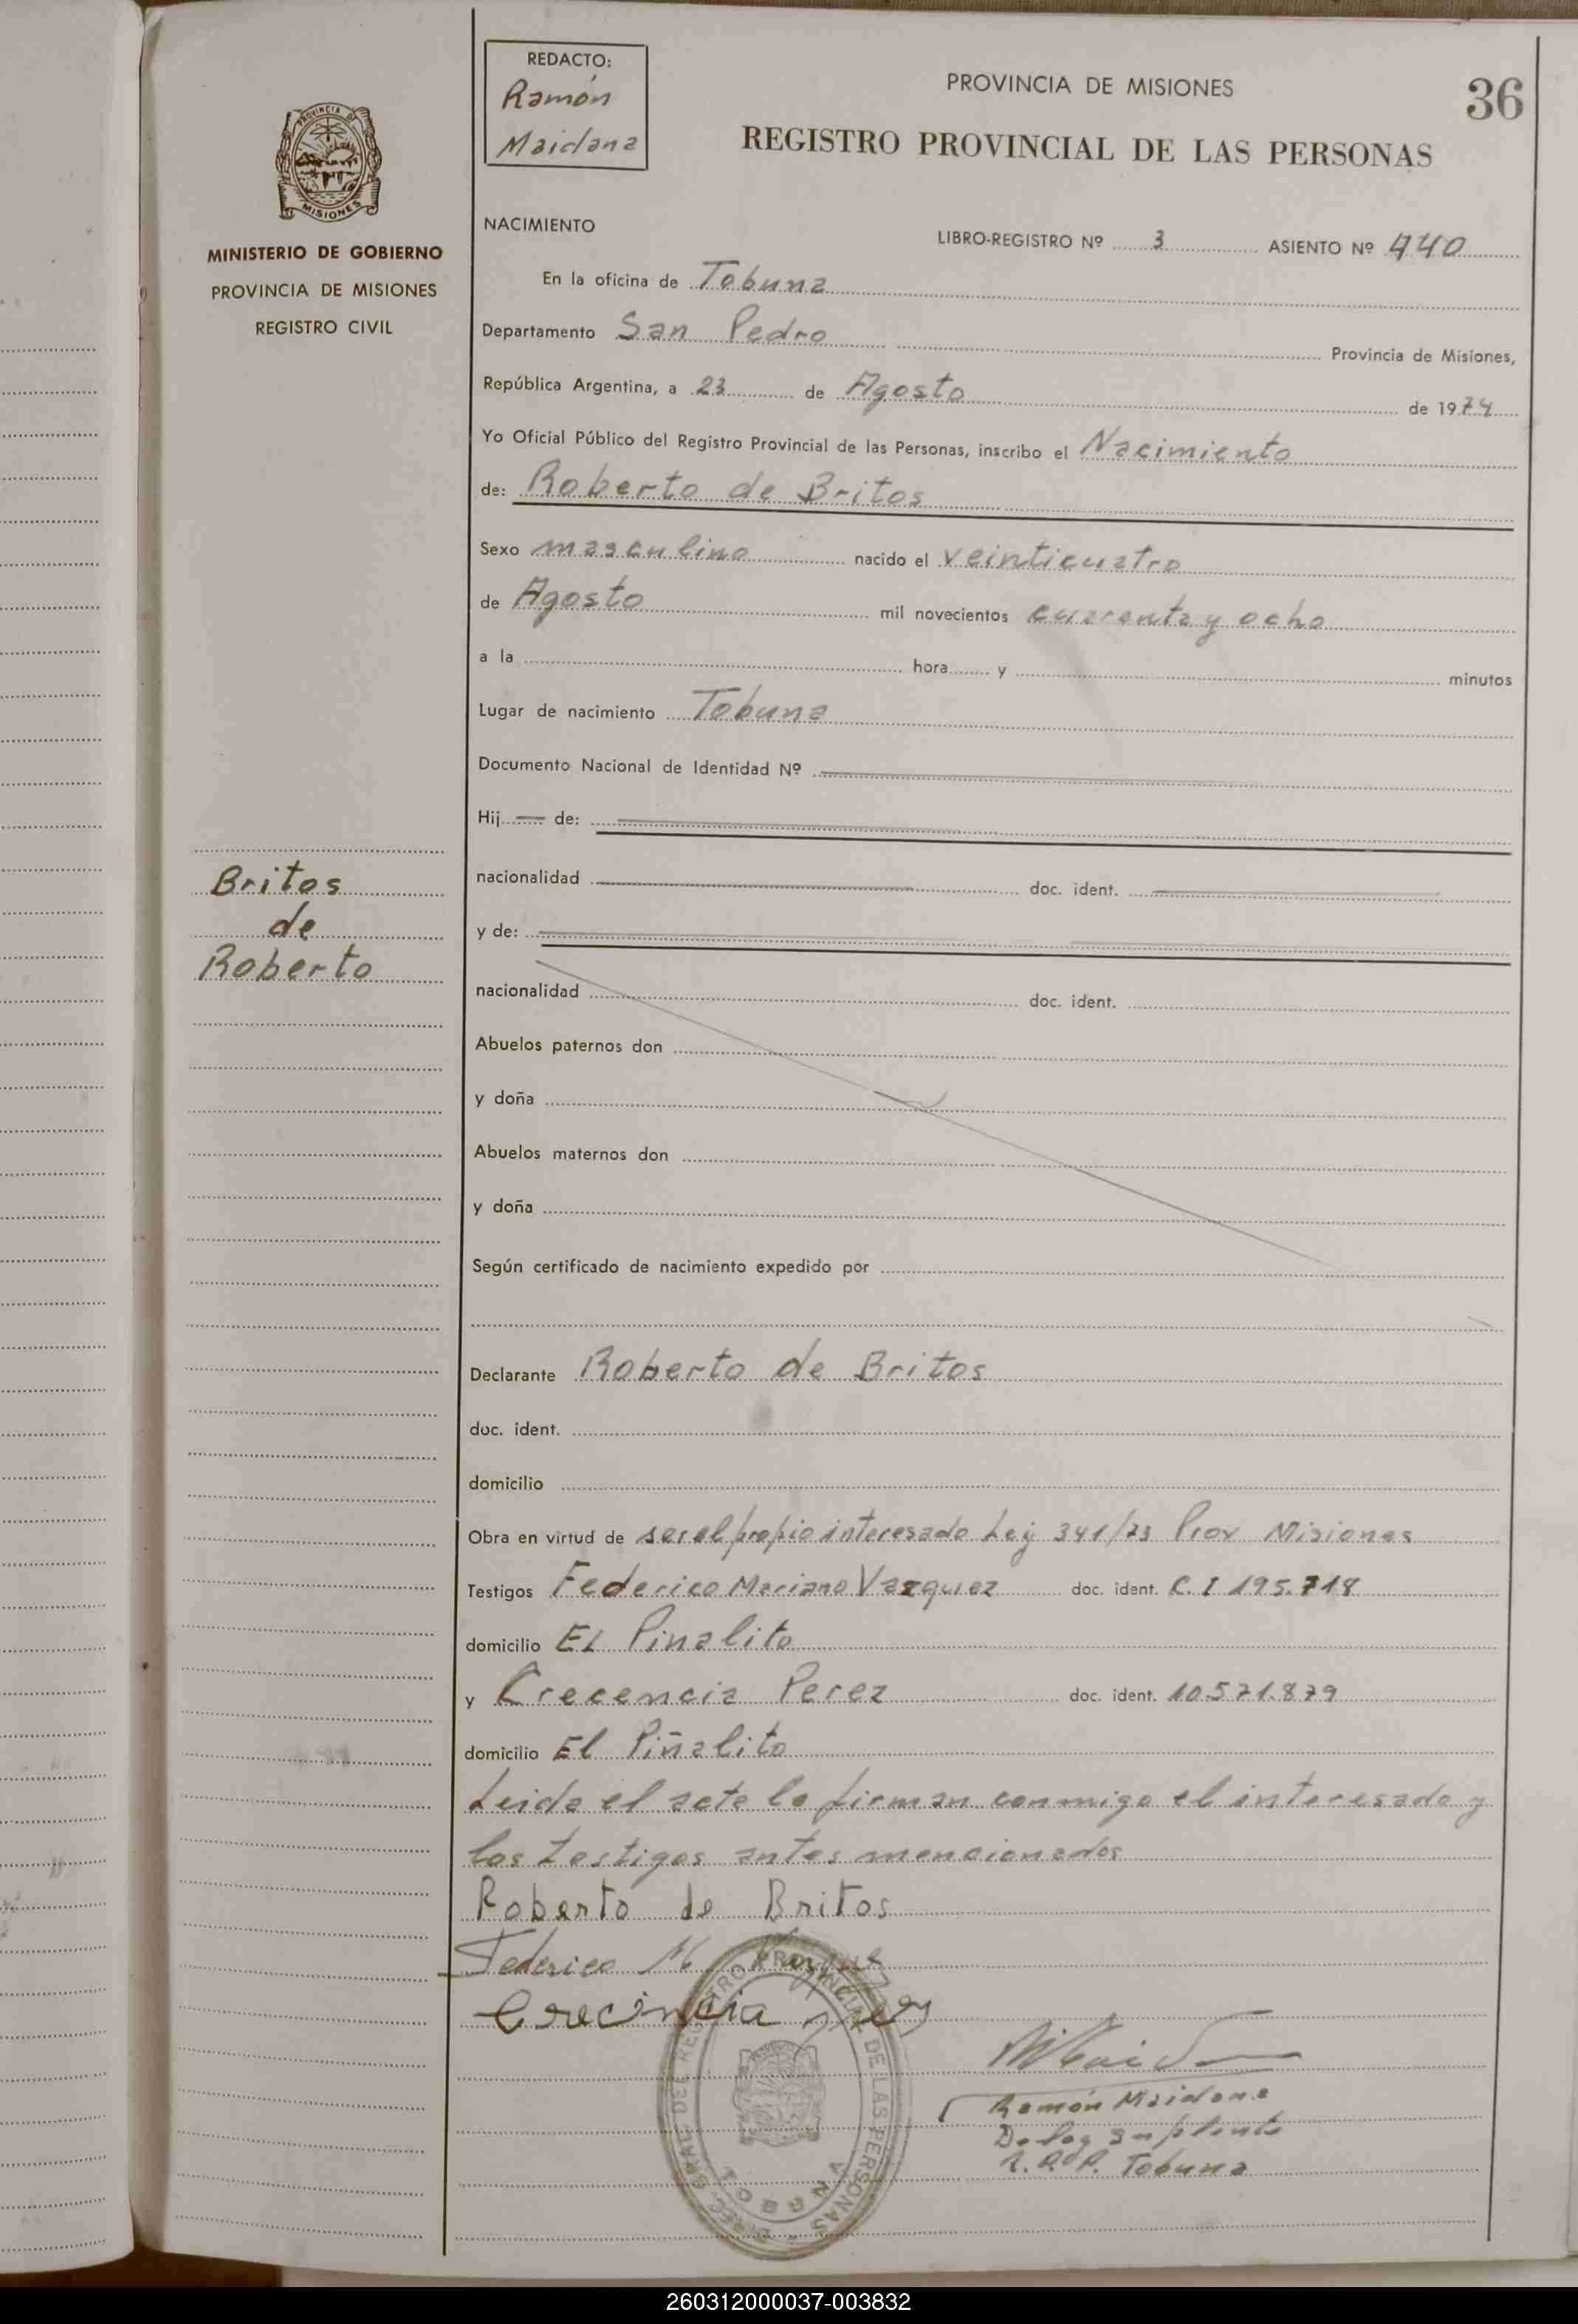 REDACTO:
Ramón
Maidana
PROVINCIA DE MISIONES
36
REGISTRO PROVINCIAL DE LAS PERSONAS
PROVINCIA DE
MISIONES
MINISTERIO DE GOBIERNO
PROVINCIA DE MISIONES
REGISTRO CIVIL
NACIMIENTO
LIBRO-REGISTRO Nº 3 ASIENTO Nº 440
En la oficina de Tobuna
Departamento San Pedro Provincia de Misiones,
República Argentina, a 23 de Agosto de 1974
Yo Oficial Público del Registro Provincial de las Personas, inscribo el Nacimiento
de: Roberto de Britos
Sexo masculino nacido el veinticuatro
de Agosto mil novecientos cuarenta y ocho
a la hora y minutos
Lugar de nacimiento Tobuna
Documento Nacional de Identidad Nº
Hij de:
nacionalidad doc. ident.
Britos
de
Roberto
y de:
nacionalidad doc. ident.
Abuelos paternos don
y doña
Abuelos maternos don
y doña
Según certificado de nacimiento expedido por
Declarante Roberto de Britos
doc. ident.
domicilio
Obra en virtud de ser el propio interesado Ley 341/73 Prov Misiones
Testigos Federico Mariano Vazquez doc. ident. C.I 195.718
domicilio El Pinalito
y Crecencia Perez doc. ident. 10.571.879
domicilio El Piñalito
Leida el acta la firman conmigo el interesado y
los testigos antes mencionados
Roberto de Britos
Federico M
Crecincia
Ramón Maidana
Deleg suplente
R.P.P. Tobuna
REGISTRO PROVINCIAL DE LAS PERSONAS
TOBUNA
260312000037-003832